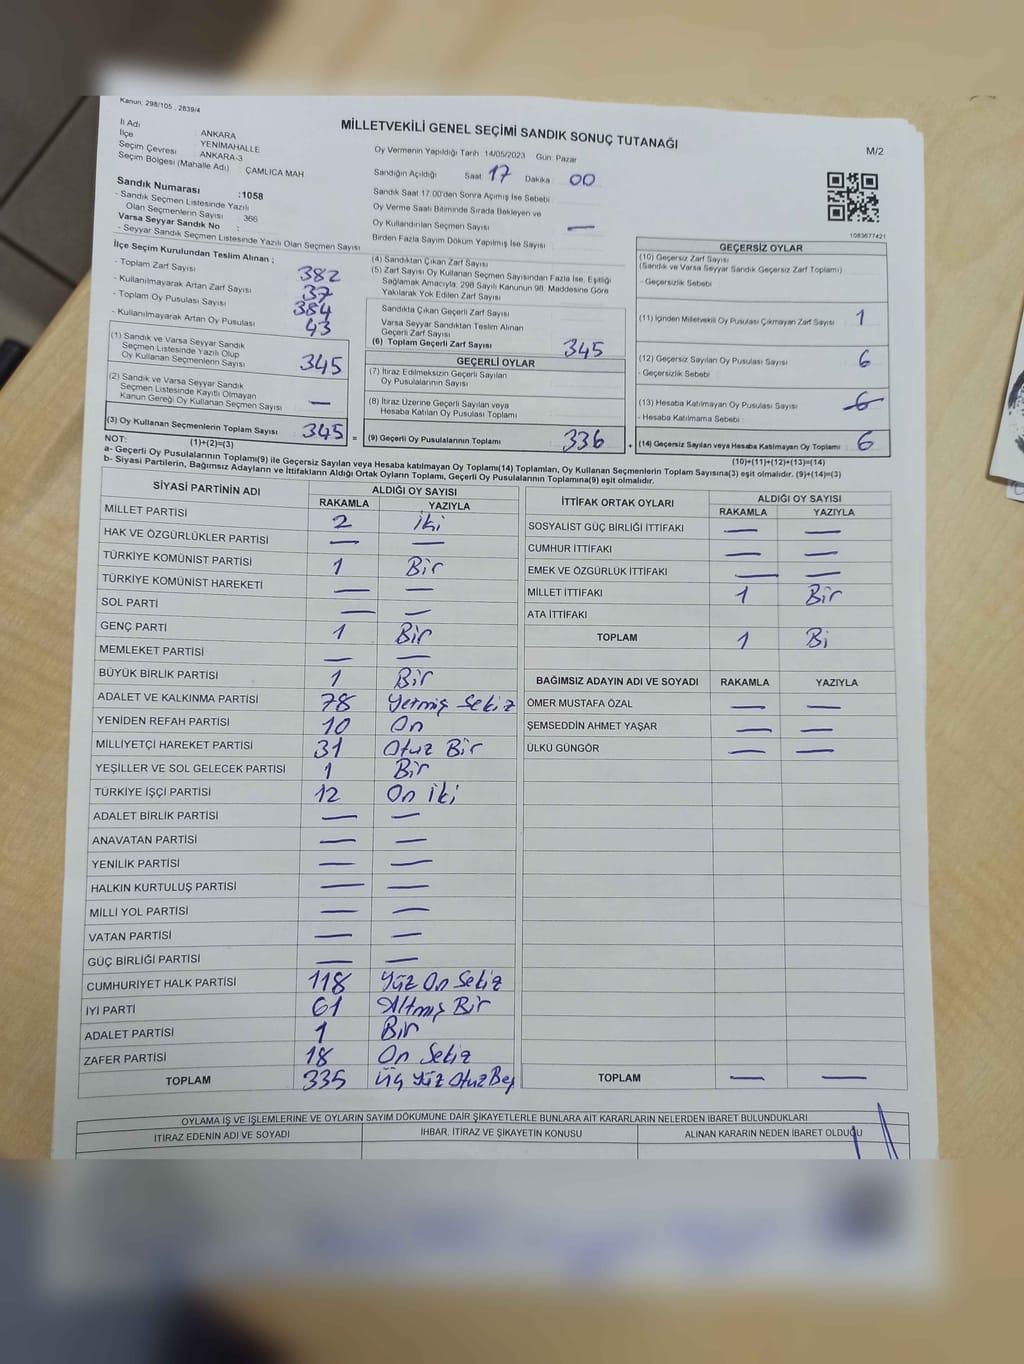 Kanun: 298/105 , 2839/4
MİLLETVEKİLİ GENEL SEÇİMİ SANDIK SONUÇ TUTANAĞI
M/2
İl Adı ANKARA
İlçe YENİMAHALLE
Seçim Çevresi ANKARA-3
Seçim Bölgesi (Mahalle Adı) : ÇAMLICA MAH
Sandık Numarası :1058
- Sandık Seçmen Listesinde Yazılı
Olan Seçmenlerin Sayısı 366
Varsa Seyyar Sandık No :
- Seyyar Sandık Seçmen Listesinde Yazılı Olan Seçmen Sayısı
Oy Vermenin Yapıldığı Tarih :14/05/2023 Gün: Pazar
Sandığın Açıldığı Saat 17 Dakika 00
Sandık Saat 17.00'den Sonra Açımış İse Sebebi
Oy Verme Saati Bitiminde Sırada Bekleyen ve
Oy Kullandırılan Seçmen Sayısı —
Birden Fazla Sayım Döküm Yapılmış İse Sayısı
1083677421
İlçe Seçim Kurulundan Teslim Alınan ;
- Toplam Zarf Sayısı 382
- Kullanılmayarak Artan Zarf Sayısı 37
- Toplam Oy Pusulası Sayısı 384
- Kullanılmayarak Artan Oy Pusulası 43
(1) Sandık ve Varsa Seyyar Sandık
Seçmen Listesinde Yazılı Olup
Oy Kullanan Seçmenlerin Sayısı 345
(2) Sandık ve Varsa Seyyar Sandık
Seçmen Listesinde Kayıtlı Olmayan
Kanun Gereği Oy Kullanan Seçmen Sayısı —
(3) Oy Kullanan Seçmenlerin Toplam Sayısı 345 =
(4) Sandıktan Çıkan Zarf Sayısı
(5) Zarf Sayısı Oy Kullanan Seçmen Sayısından Fazla İse, Eşitliği
Sağlamak Amacıyla; 298 Sayılı Kanunun 98. Maddesine Göre
Yakılarak Yok Edilen Zarf Sayısı
Sandıkta Çıkan Geçerli Zarf Sayısı
Varsa Seyyar Sandıktan Teslim Alınan
Geçerli Zarf Sayısı
(6) Toplam Geçerli Zarf Sayısı 345
GEÇERLİ OYLAR
(7) İtiraz Edilmeksizin Geçerli Sayılan
Oy Pusulalarının Sayısı
(8) İtiraz Üzerine Geçerli Sayılan veya
Hesaba Katılan Oy Pusulası Toplamı
(9) Geçerli Oy Pusulalarının Toplamı 336 +
GEÇERSİZ OYLAR
(10) Geçersiz Zarf Sayısı
(Sandık ve Varsa Seyyar Sandık Geçersiz Zarf Toplamı)
- Geçersizlik Sebebi
(11) İçinden Milletvekili Oy Pusulası Çıkmayan Zarf Sayısı 1
(12) Geçersiz Sayılan Oy Pusulası Sayısı 6
- Geçersizlik Sebebi
(13) Hesaba Katılmayan Oy Pusulası Sayısı 6
- Hesaba Katılmama Sebebi
(14) Geçersiz Sayılan veya Hesaba Katılmayan Oy Toplamı 6
NOT: (1)+(2)=(3)
(10)+(11)+(12)+(13)=(14)
a- Geçerli Oy Pusulalarının Toplamı(9) ile Geçersiz Sayılan veya Hesaba katılmayan Oy Toplamı(14) Toplamları, Oy Kullanan Seçmenlerin Toplam Sayısına(3) eşit olmalıdır. (9)+(14)=(3)
b- Siyasi Partilerin, Bağımsız Adayların ve İttifakların Aldığı Ortak Oyların Toplamı, Geçerli Oy Pusulalarının Toplamına(9) eşit olmalıdır.
SİYASİ PARTİNİN ADI ALDIĞI OY SAYISI
RAKAMLA YAZIYLA
MİLLET PARTİSİ 2 iki
HAK VE ÖZGÜRLÜKLER PARTİSİ — —
TÜRKİYE KOMÜNİST PARTİSİ 1 Bir
TÜRKİYE KOMÜNİST HAREKETİ — —
SOL PARTİ — —
GENÇ PARTİ 1 Bir
MEMLEKET PARTİSİ — —
BÜYÜK BİRLİK PARTİSİ 1 Bir
ADALET VE KALKINMA PARTİSİ 78 Yetmiş Sekiz
YENİDEN REFAH PARTİSİ 10 On
MİLLİYETÇİ HAREKET PARTİSİ 31 Otuz Bir
YEŞİLLER VE SOL GELECEK PARTİSİ 1 Bir
TÜRKİYE İŞÇİ PARTİSİ 12 On iki
ADALET BİRLİK PARTİSİ — —
ANAVATAN PARTİSİ — —
YENİLİK PARTİSİ — —
HALKIN KURTULUŞ PARTİSİ — —
MİLLİ YOL PARTİSİ — —
VATAN PARTİSİ — —
GÜÇ BİRLİĞİ PARTİSİ — —
CUMHURİYET HALK PARTİSİ 118 Yüz On Sekiz
İYİ PARTİ 61 Altmış Bir
ADALET PARTİSİ 1 Bir
ZAFER PARTİSİ 18 On Sekiz
TOPLAM 335 Üç Yüz Otuz Beş
İTTİFAK ORTAK OYLARI ALDIĞI OY SAYISI
RAKAMLA YAZIYLA
SOSYALİST GÜÇ BİRLİĞİ İTTİFAKI — —
CUMHUR İTTİFAKI — —
EMEK VE ÖZGÜRLÜK İTTİFAKI — —
MİLLET İTTİFAKI 1 Bir
ATA İTTİFAKI
TOPLAM 1 Bi
BAĞIMSIZ ADAYIN ADI VE SOYADI RAKAMLA YAZIYLA
ÖMER MUSTAFA ÖZAL — —
ŞEMSEDDİN AHMET YAŞAR — —
ÜLKÜ GÜNGÖR — —
TOPLAM — —
OYLAMA İŞ VE İŞLEMLERİNE VE OYLARIN SAYIM DÖKÜMÜNE DAİR ŞİKAYETLERLE BUNLARA AİT KARARLARIN NELERDEN İBARET BULUNDUKLARI
İTİRAZ EDENİN ADI VE SOYADI İHBAR, İTİRAZ VE ŞİKAYETİN KONUSU ALINAN KARARIN NEDEN İBARET OLDUĞU